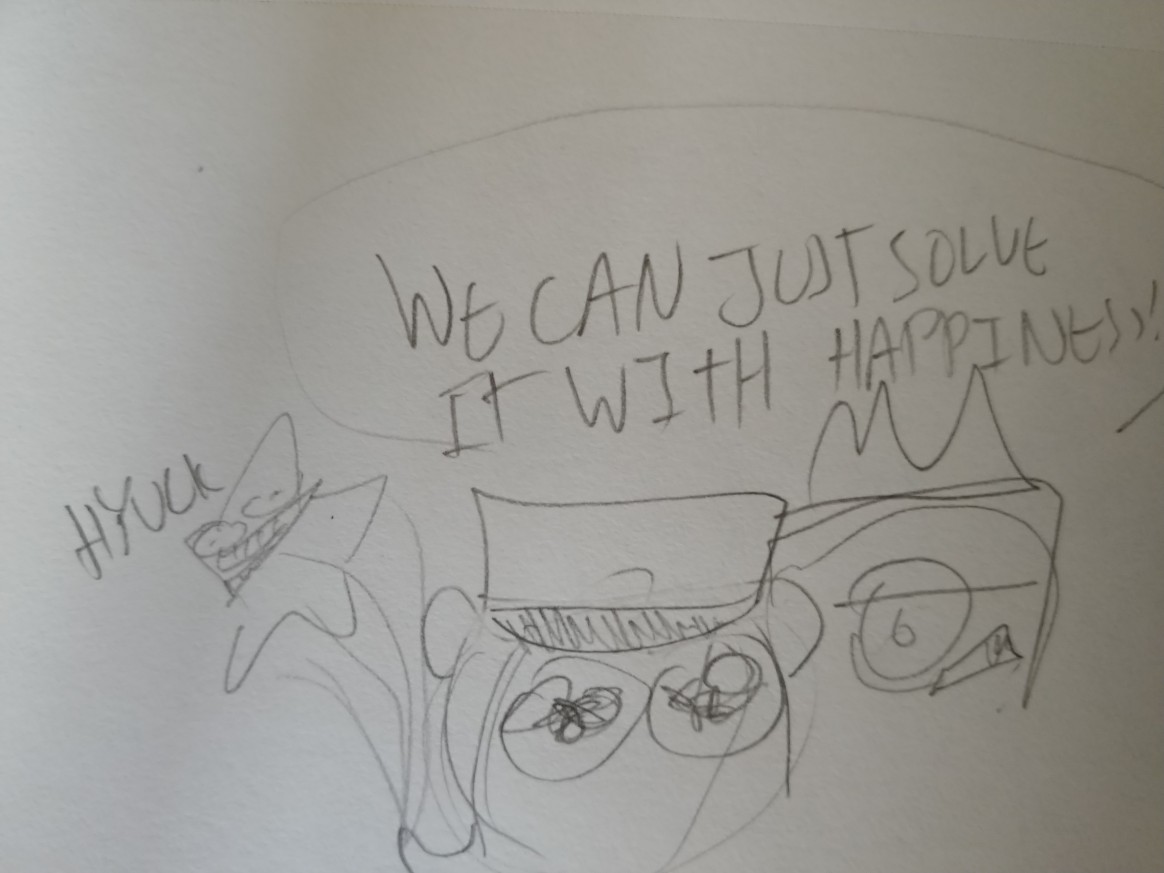 WE CAN JUST SOLVE
IT WITH HAPPINESS!
HYUCK